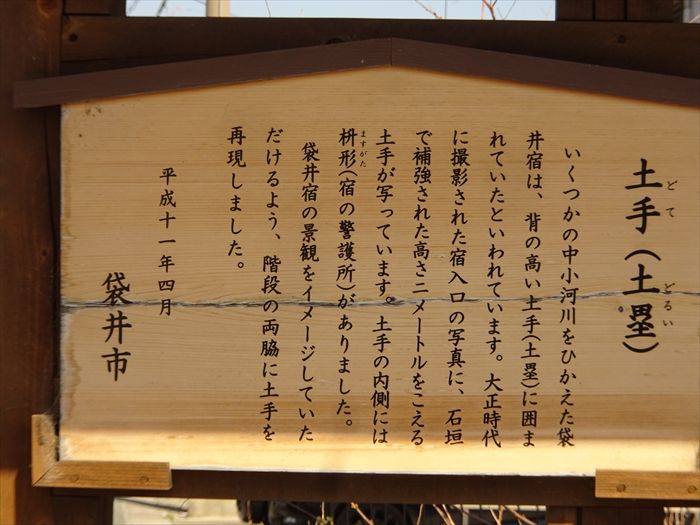 土手（土塁）
どて
どるい
いくつかの中小河川をひかえた袋
井宿は、背の高い土手（土塁）に囲ま
れていたといわれています。大正時代
に撮影された宿入口の写真に、石垣
で補強された高さ二メートルをこえる
土手が写っています。土手の内側には
枡形（宿の警護所）がありました。
ますがた
袋井宿の景観をイメージしていた
だけるよう、階段の両脇に土手を
再現しました。
平成十一年四月
袋井市